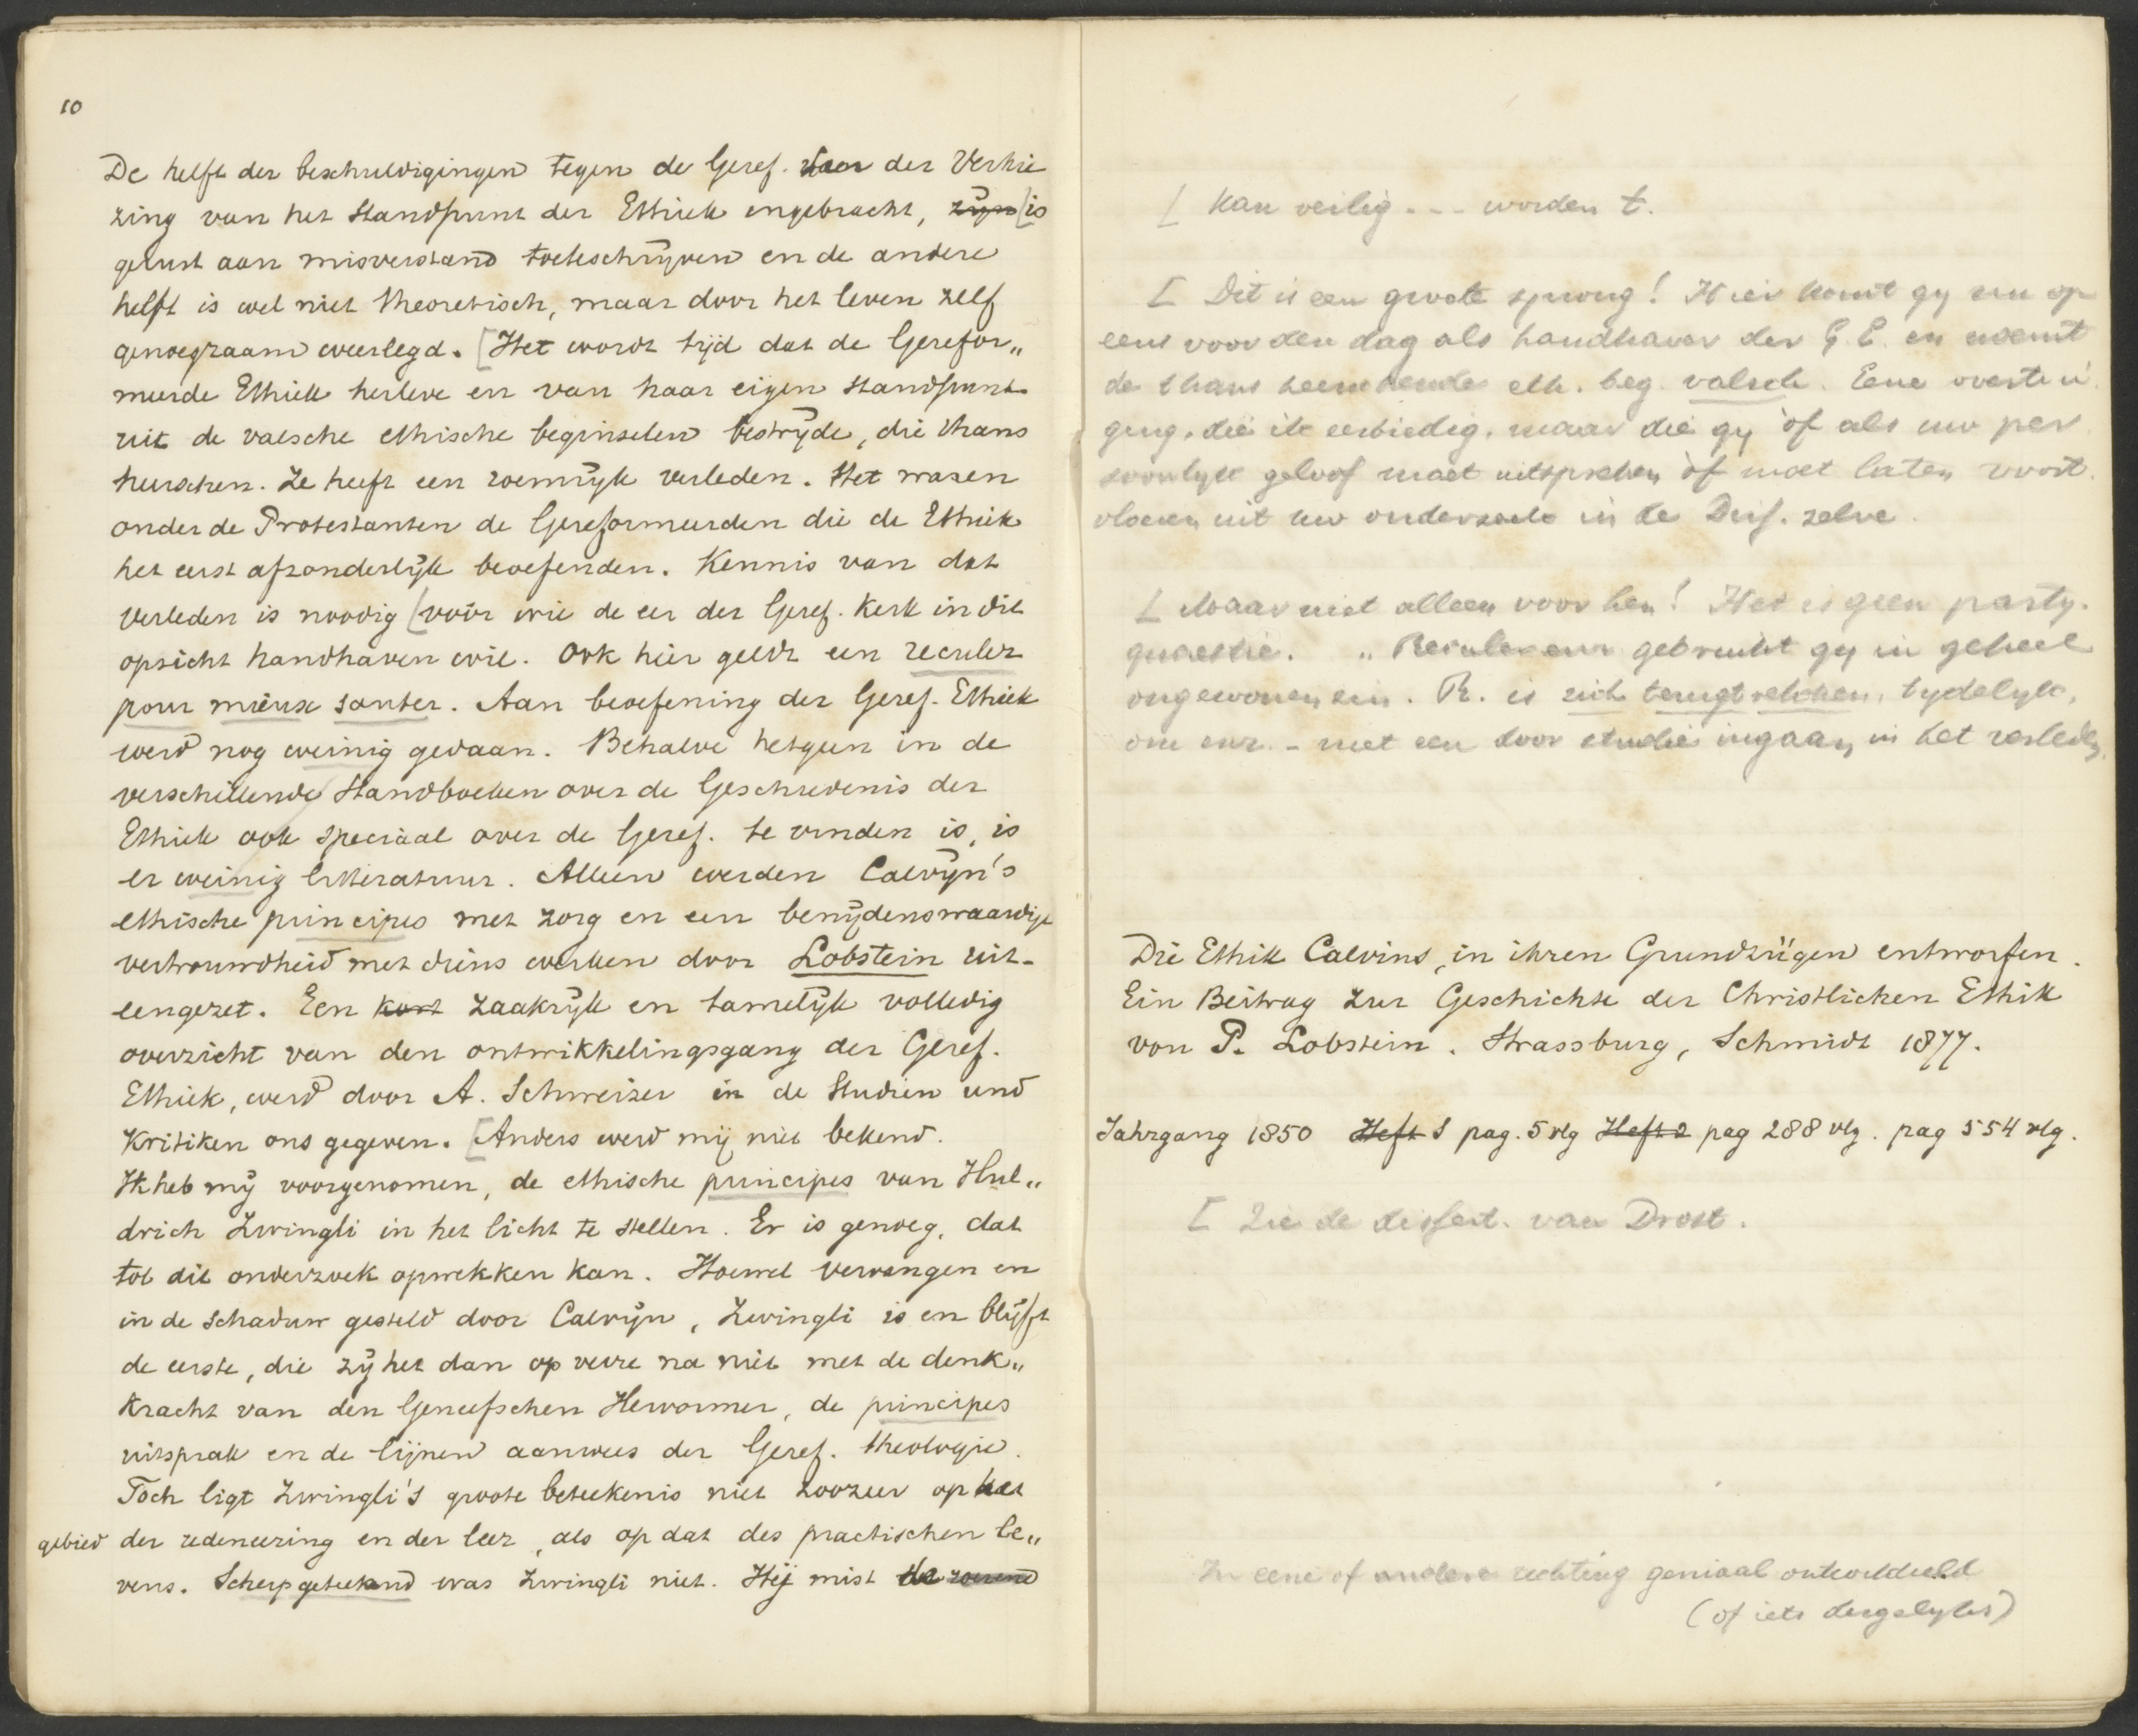 10
De helft der beschuldigingen tegen de Geref. der Verkie
zing van het standpunt der Ethiek ingebracht, zijn [is
gerust aan misverstand toeteschrijven en de andere
helft is wel niet theoretisch, maar door het leven zelf
genoegzaam weerlegd. [Het wordt tijd dat de Gerefor„
meerde Ethiek herleve en van haar eigen standpunt
uit de valsche ethische beginselen bestrijde, die thans
heerschen. Ze heeft een roemrijk verleden. Het waren
onder de Protestanten de Gereformeerden die de Ethiek
het eerst afzonderlijk beoefenden. Kennis van dat
verleden is noodig [voor wie de eer der Geref. Kerk in dit
opzicht handhaven wil. Ook hier geldt een reculer
pour mieux sauter. Aan beoefening der Geref. Ethiek
werd nog weinig gedaan. Behalve hetgeen in de
verschillende Handboeken over de Geschiedenis der
Ethiek ook speciaal over de Geref. te vinden is, is
er weinig litteratuur. Alleen werden Calvijn's
ethische principes met zorg en een benijdenswaardige
vertrouwdheid met diens werken door Lobstein uit-
eengezet. Een kort zaakrijk en tamelijk volledig
overzicht van den ontwikkelingsgang der Geref.
Ethiek, werd door A. Schweizer in de Studien und
Kritiken ons gegeven. [Anders werd mij niet bekend.
Ik heb mij voorgenomen, de ethische principes van Hul„
drich Zwingli in het licht te stellen. Er is genoeg, dat
tot dit onderzoek opwekken kan. Hoewel vervangen en
in de schaduw gesteld door Calvijn, Zwingli is en blijft
de eerste, die zij het dan op verre na niet met de denk„
kracht van den Geneefschen Hervormer, de principes
uitsprak en de lijnen aanwees der Geref. theologie.
Toch ligt Zwingli's groote beteekenis niet zoozeer op het
gebied der redeneering en der leer, als op dat des practischen le„
vens. Scherpgeteekend was Zwingli niet. Hij mist
[ Kan veilig - - - worden t.
[ Dit is een groote sprong! Hier komt gy nu op
eens voor den dag als handhaver der G. E. en noemt
de thans heerschende eth. beg. valsch. Eene overtui
ging, die ik eerbiedig, maar die gy òf als uw per
soonlyk geloof moet uitspreken òf moet laten voort
vloeien uit uw onderzoek in de Diss. zelve.
[ Maar niet alleen voor hen! Het is geen party.
quaestie. „Reculer enz gebruikt gy in geheel
ongewonen zin. R. is zich terugtrekken, tydelyk,
om enz. - niet een door studie ingaan in het verleden.
Die Ethik Calvins, in ihren Grundzügen entworfen.
Ein Beitrag zur Geschichte der Christlichen Ethik
von P. Lobstein. Strassburg, Schmidt 1877.
Jahrgang 1850 Heft 1 pag. 5 vlg Heft 2 pag 288 vlg. pag 554 vlg.
[ Zie de dissert. van Drost.
In eene of andere richting geniaal ontwikkeld
(of iets dergelyks)